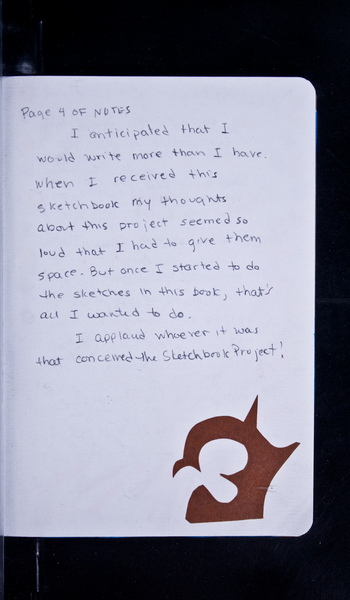 Page 4 OF NOTES
I anticipated that I
would write more than I have.
When I received this
sketchbook my thoughts
about this project seemed so
loud that I had to give them
space. But once I started to do
the sketches in this book, that's
all I wanted to do.
I applaud whoever it was
that conceived the Sketchbook Project!